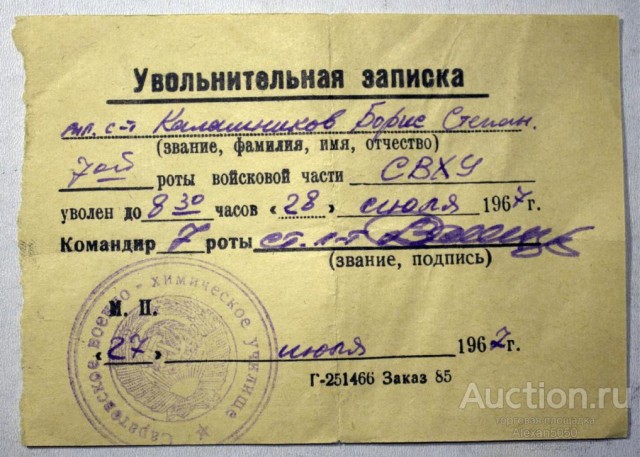 Увольнительная записка
мл. с-т Калашников Борис Степан.
(звание, фамилия, имя, отчество)
7ой роты войсковой части СВХУ
уволен до 8 30 часов «28» июля 1967г.
Командир 7 роты ст. л-т
(звание, подпись)
М. П.
«27» июля 1967г.
Г-251466 Заказ 85
Саратовское военно-химическое училище
Auction.ru
торговая площадка
Alexan5050